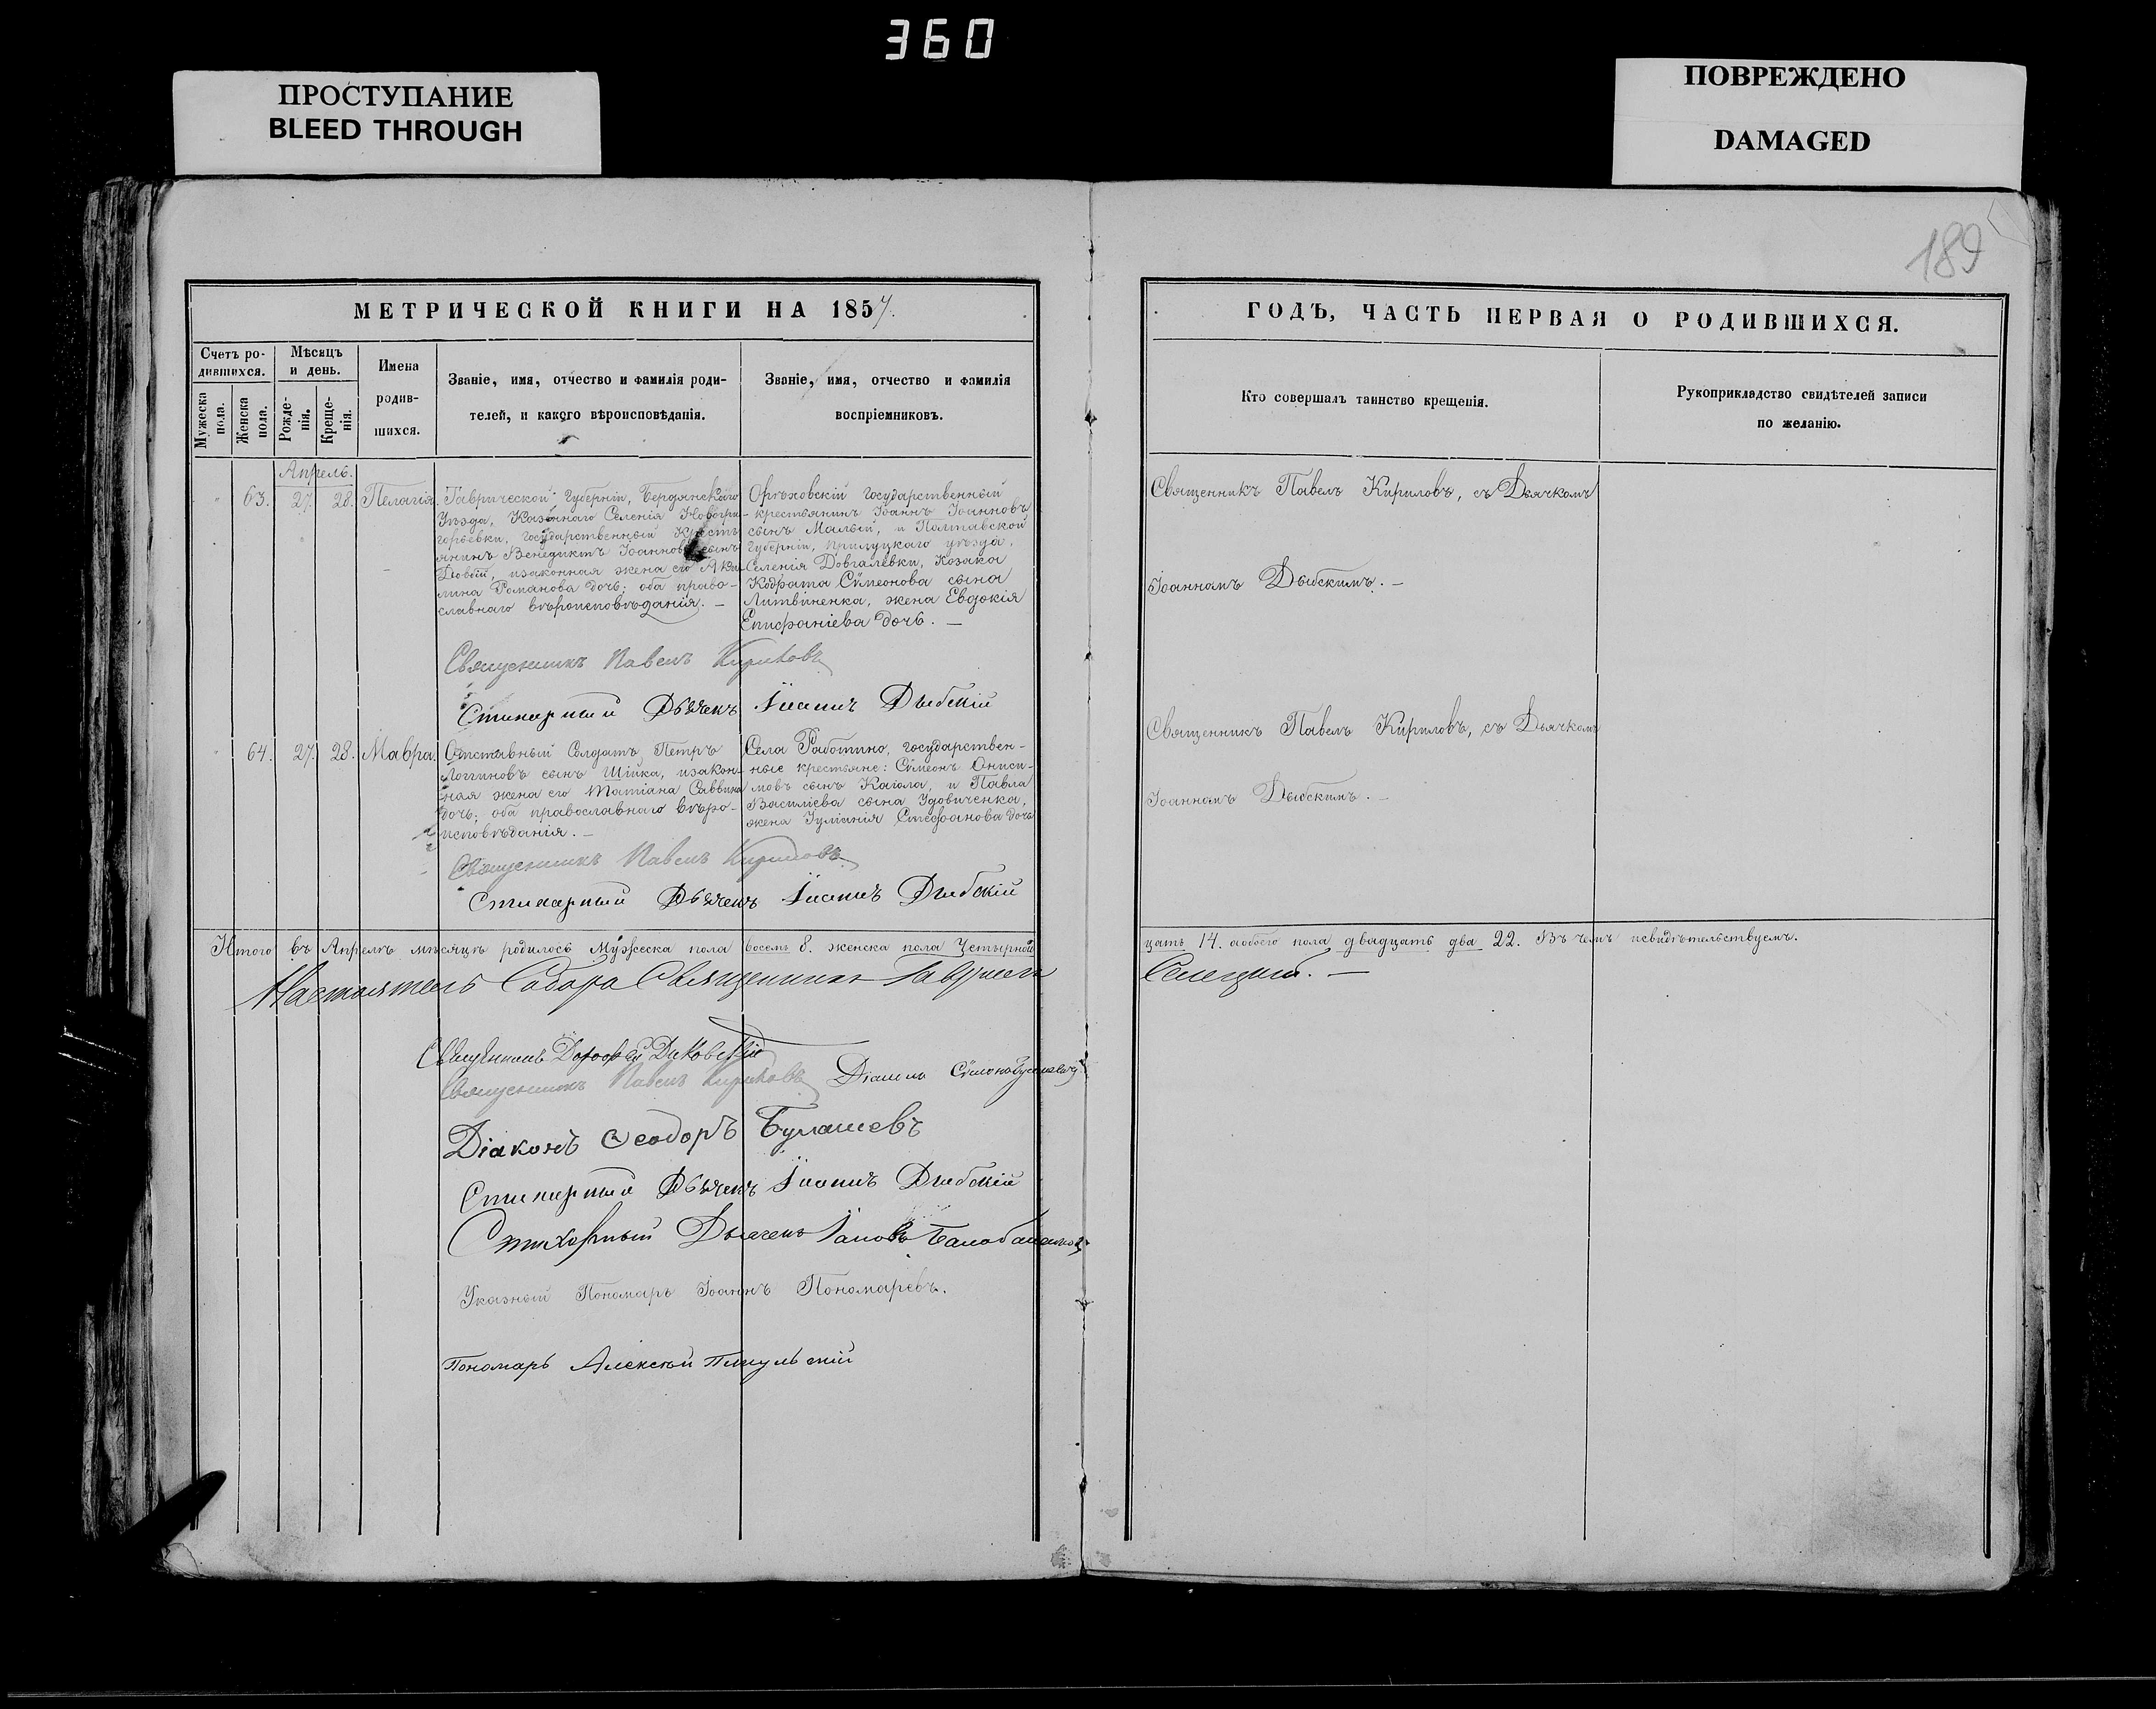 360
ПРОСТУПАНИЕ
BLEED THROUGH
ПОВРЕЖДЕНО
DAMAGED
189
МЕТРИЧЕСКОЙ КНИГИ НА 1857.
Счетъ ро-
дившихся.
Мужеска
пола.
Женска
пола.
Мѣсяцъ
и день.
Рожде-
нія.
Креще-
нія.
Имена
родив-
шихся.
Званіе, имя, отчество и фамилія роди-
телей, и какого вѣроисповѣданія.
Званіе, имя, отчество и фамилія
воспріемниковъ.
Апрель.
63. 27. 28. Пелагія
Таврической Губерніи, Бердянскаго
Уѣзда, Казеннаго Селенія Новогри-
горьевки, государственный Крестъ
янинъ Венедиктъ Іоанновъ сынъ
изаконная жена его Аки-
лина Романова дочь; оба право-
славнаго вѣроисповѣданія. —
Орѣховскій Государственный
крестьянинъ Іоаннъ Іоанновъ
сынъ Малый, и Полтавской
Губерніи, прилуцкаго уѣзда,
Селенія Довгалевки, Козака
Кодрата Сѵмеонова сына
Литвиненка, жена Евдокія
Епифаніева дочь. —
Священникъ Павелъ Кириловъ
Стихарный Дьячекъ Іоаннъ Дыбскій
64. 27. 28. Мавра.
Отставный Солдатъ Петръ
Логгиновъ сынъ Шійка, изакон-
ная жена его Татіана Саввина
дочь; оба православнаго вѣро-
исповѣданія. —
Села Работино, государствен-
ные крестьяне: Сѵмеонъ Ониси-
мовъ сынъ Кагала, и Павла
Василіева сына Удовиченка,
жена Іуліанія Стефанова дочь
Священникъ Павелъ Кириловъ
Стихарный Дьячекъ Іоаннъ Дыбскій
Итого въ Апрелѣ мѣсяцѣ родилось Мужеска пола восемь 8. женска пола Четырнад
Настоятель Собора Священникъ Гавріилъ
Священникъ Дорофей
Священникъ Павелъ Кириловъ Діаконъ
Діаконъ Ѳеодоръ Булашевъ
Стихарный Дьячекъ Іоаннъ Дыбскій
Стихарный Дьячекъ Іаковъ
Указный Пономарь Іоаннъ Пономаревъ.
Пономарь Алексѣй
ГОДЪ, ЧАСТЬ ПЕРВАЯ О РОДИВШИХСЯ.
Кто совершалъ таинство крещенія.
Рукоприкладство свидѣтелей записи
по желанію.
Священникъ Павелъ Кириловъ, съ Дьячкомъ
Іоанномъ Дыбскимъ. —
Священникъ Павелъ Кириловъ, съ Дьячкомъ
Іоанномъ Дыбскимъ. —
цать 14. аобоего пола двадцать два 22. Въ чемъ исвидѣтельствуемъ.